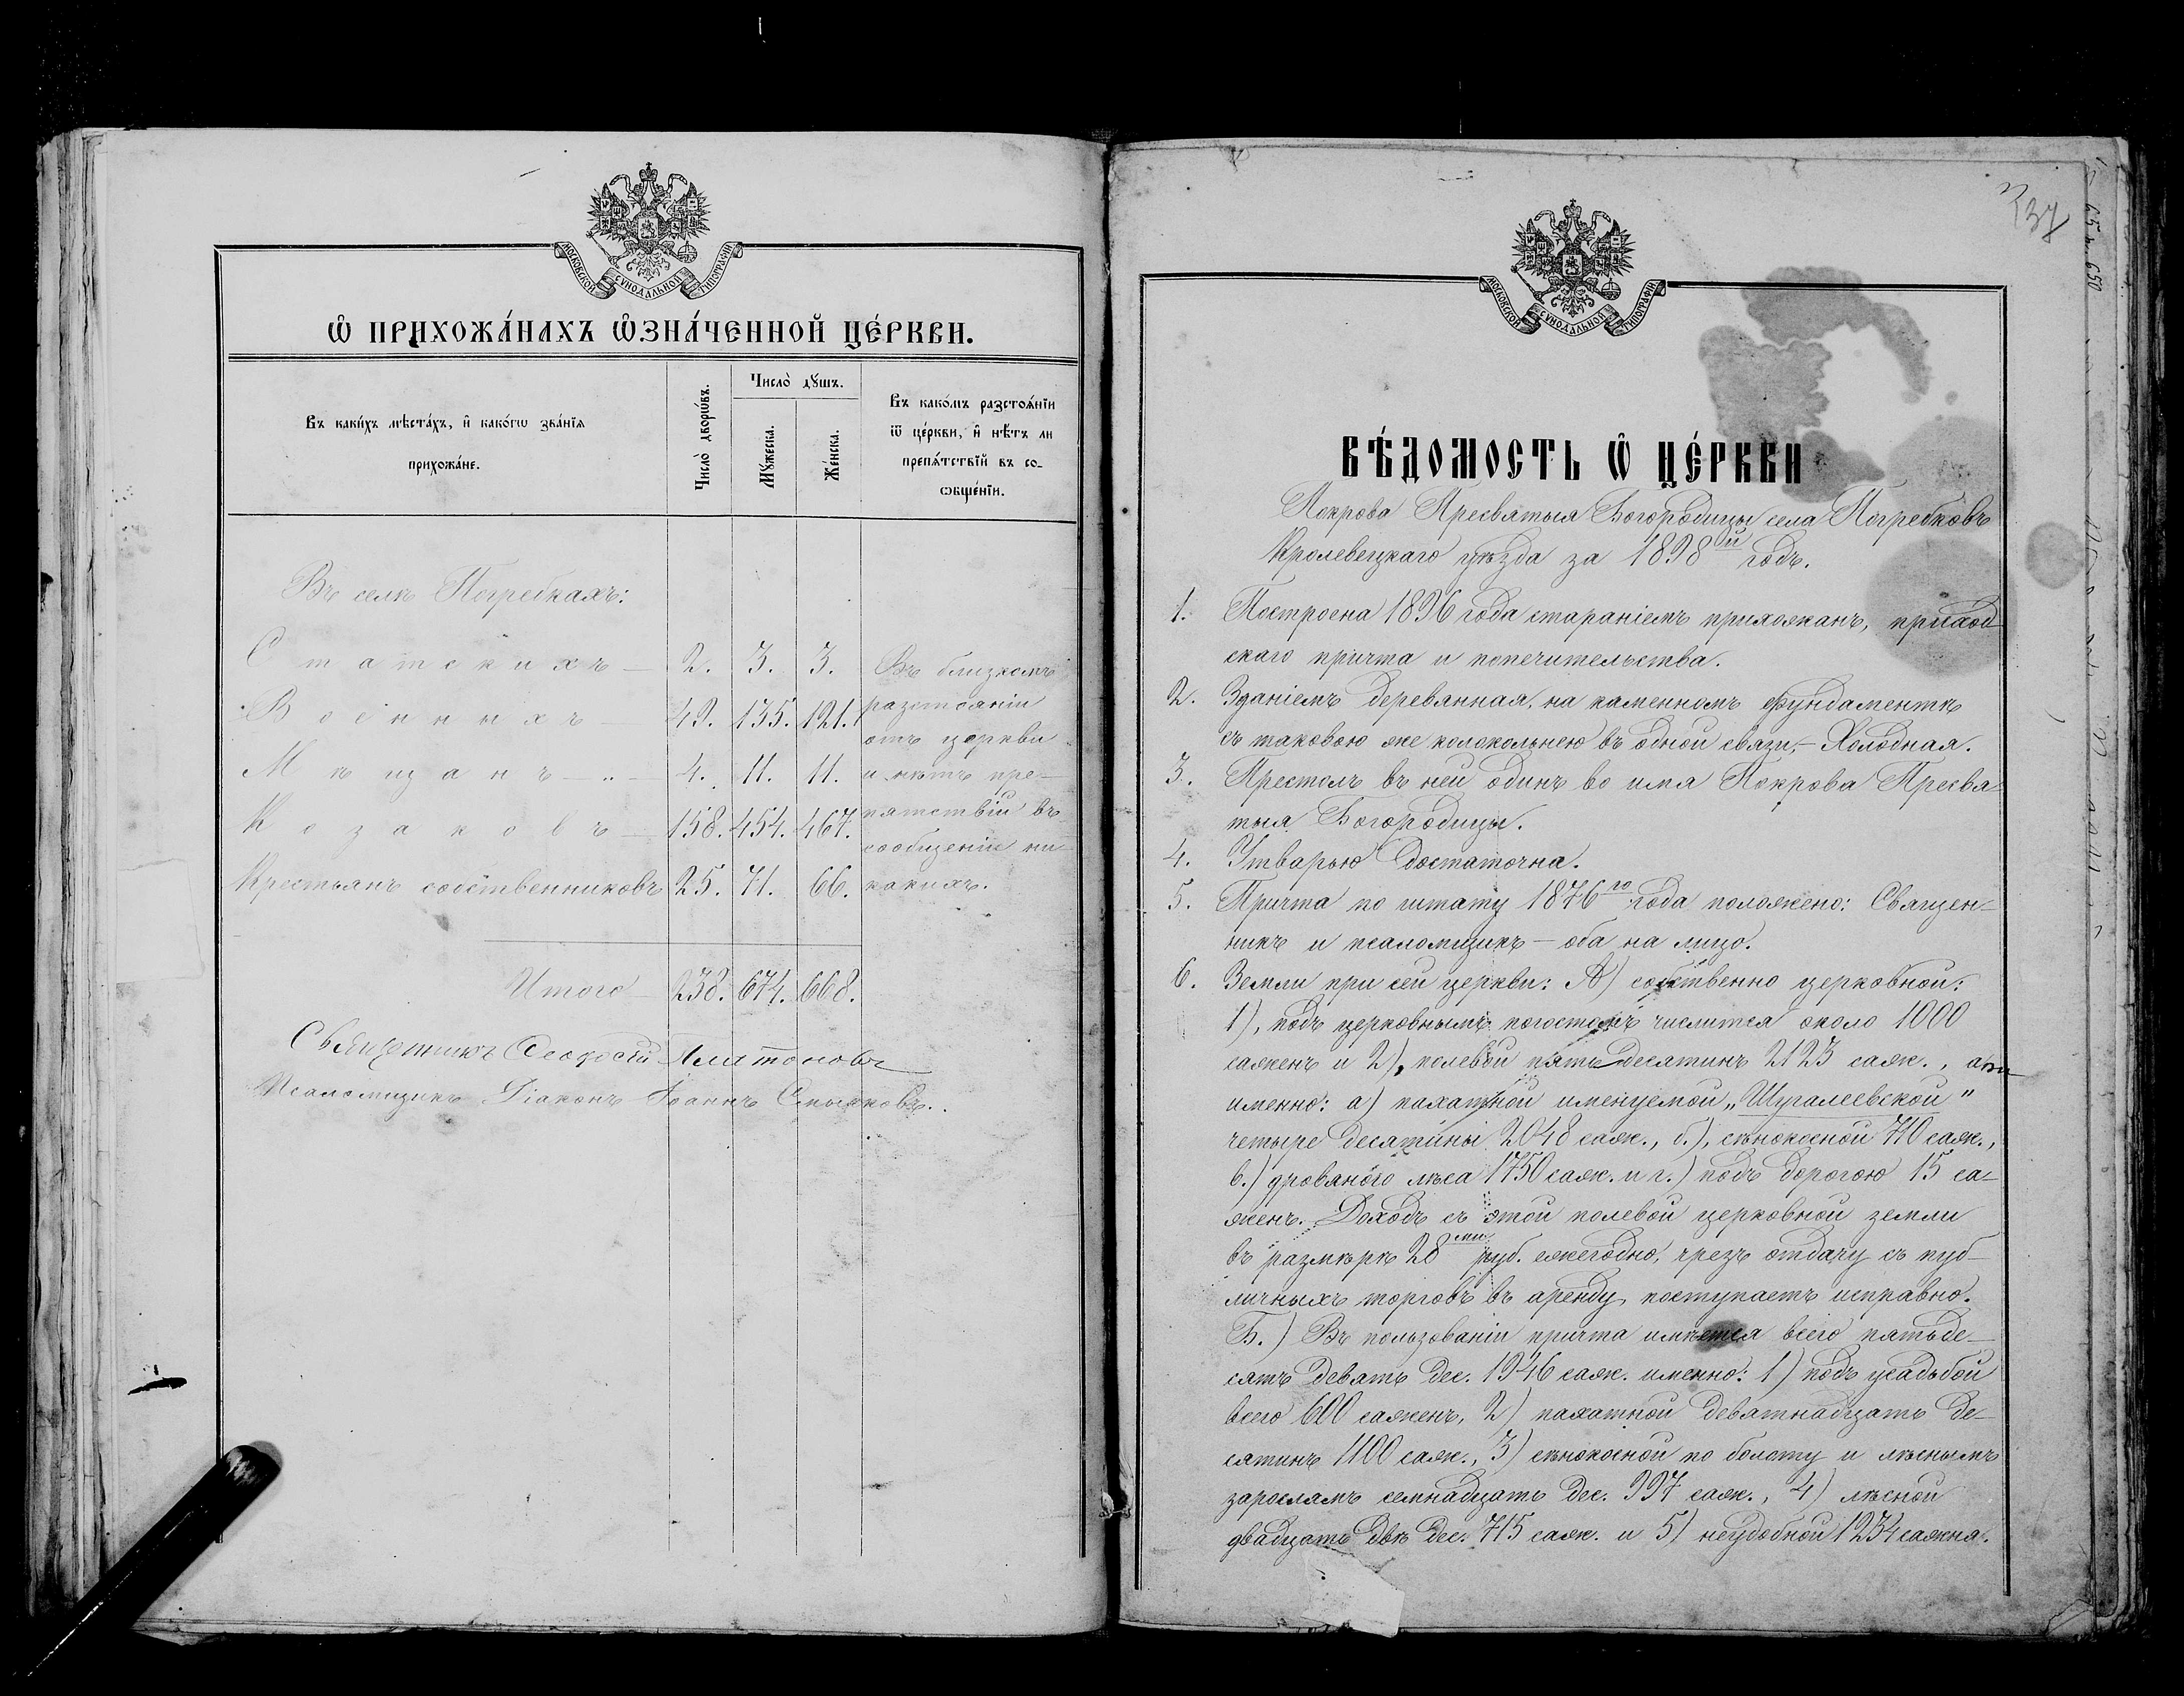 МОСКОВСКОЙ СУНОДАЛЬНОЙ ТИПОГРАФІИ
Ѡ ПРИХОЖА́НАХЪ Ѡ҆ЗНА́ЧЕННОЙ ЦЕ́РКВИ.
Въ каки́хъ мѣста́хъ, и҆ како́гѡ зва́нїѧ
прихожа́не.
Число̀ дворѡ́въ.
Число̀ дꙋшъ.
Мꙋ́жеска.
Же́нска.
Въ како́мъ разстоѧ́нїи
ѿ це́ркви, и҆ нѣ́тъ ли
препѧ́тствїй въ со-
ѻбще́нїи.
Въ селѣ Погребкахъ:
Статскихъ — 2. 3. 3. Въ близкомъ
Военныхъ — 49. 135. 121. разстояніи
отъ церкви
Мѣщанъ — „ — 4. 11. 11. и нѣтъ пре-
пятствій въ
Козаковъ — 158. 454. 467.
сообщеніи ни-
Крестьянъ собственниковъ 25. 71. 66. какихъ.
Итого 238. 674. 668.
Священникъ Ѳеодосій Платоновъ
Псаломщикъ Діаконъ Іоаннъ
337
МОСКОВСКОЙ СУНОДАЛЬНОЙ ТИПОГРАФІИ
ВѢ́ДОМОСТЬ Ѡ ЦЕ́РКВИ
Покрова Пресвятыя Богородицы села Погребковъ
Кролевецкаго уѣзда за 1898й годъ.
1. Построена 1896 года стараніемъ прихожанъ, приход-
скаго причта и попечительства.
2. Зданіемъ деревянная, на каменномъ фундаментѣ
съ таковою же колокольнею въ одной связи, – Холодная.
3. Престолъ въ ней одинъ во имя Покрова Пресвя-
тыя Богородицы.
4. Утварью достаточна.
5. Причта по штату 1876го года положено: Священ-
никъ и псаломщикъ – оба на лицо.
6. Земли при сей церкви: А) собственно церковной:
1), подъ церковнымъ погостомъ числится около 1000
сажень и 2), полевой пять десятинъ 2123 саж., а
именно: а) пахатной именуемой „Шугалеевской"
четыре десятины 2048 саж., б.), сѣнокосной 710 саж.,
в.) дровяного лѣса 1750 саж. и г.) подъ дорогою 15 са-
жень. Доходъ съ этой полевой церковной земли
въ размѣрѣ 28ми руб. ежегодно, чрезъ отдачу съ пуб-
личныхъ торговъ въ аренду, поступаетъ исправно.
Б.) Въ пользованіи причта имѣется всего пятьде-
сятъ девять дес. 1946 саж. именно: 1) подъ усадьбой
всего 600 сажень, 2) пахатной девятнадцать де-
сятинъ 1100 саж., 3) сѣнокосной по болоту и лѣснымъ
зарослямъ семнадцать дес. 997 саж., 4) лѣсной
двадцать двѣ дес. 715 саж. и 5) неудобной 1234 сажня.